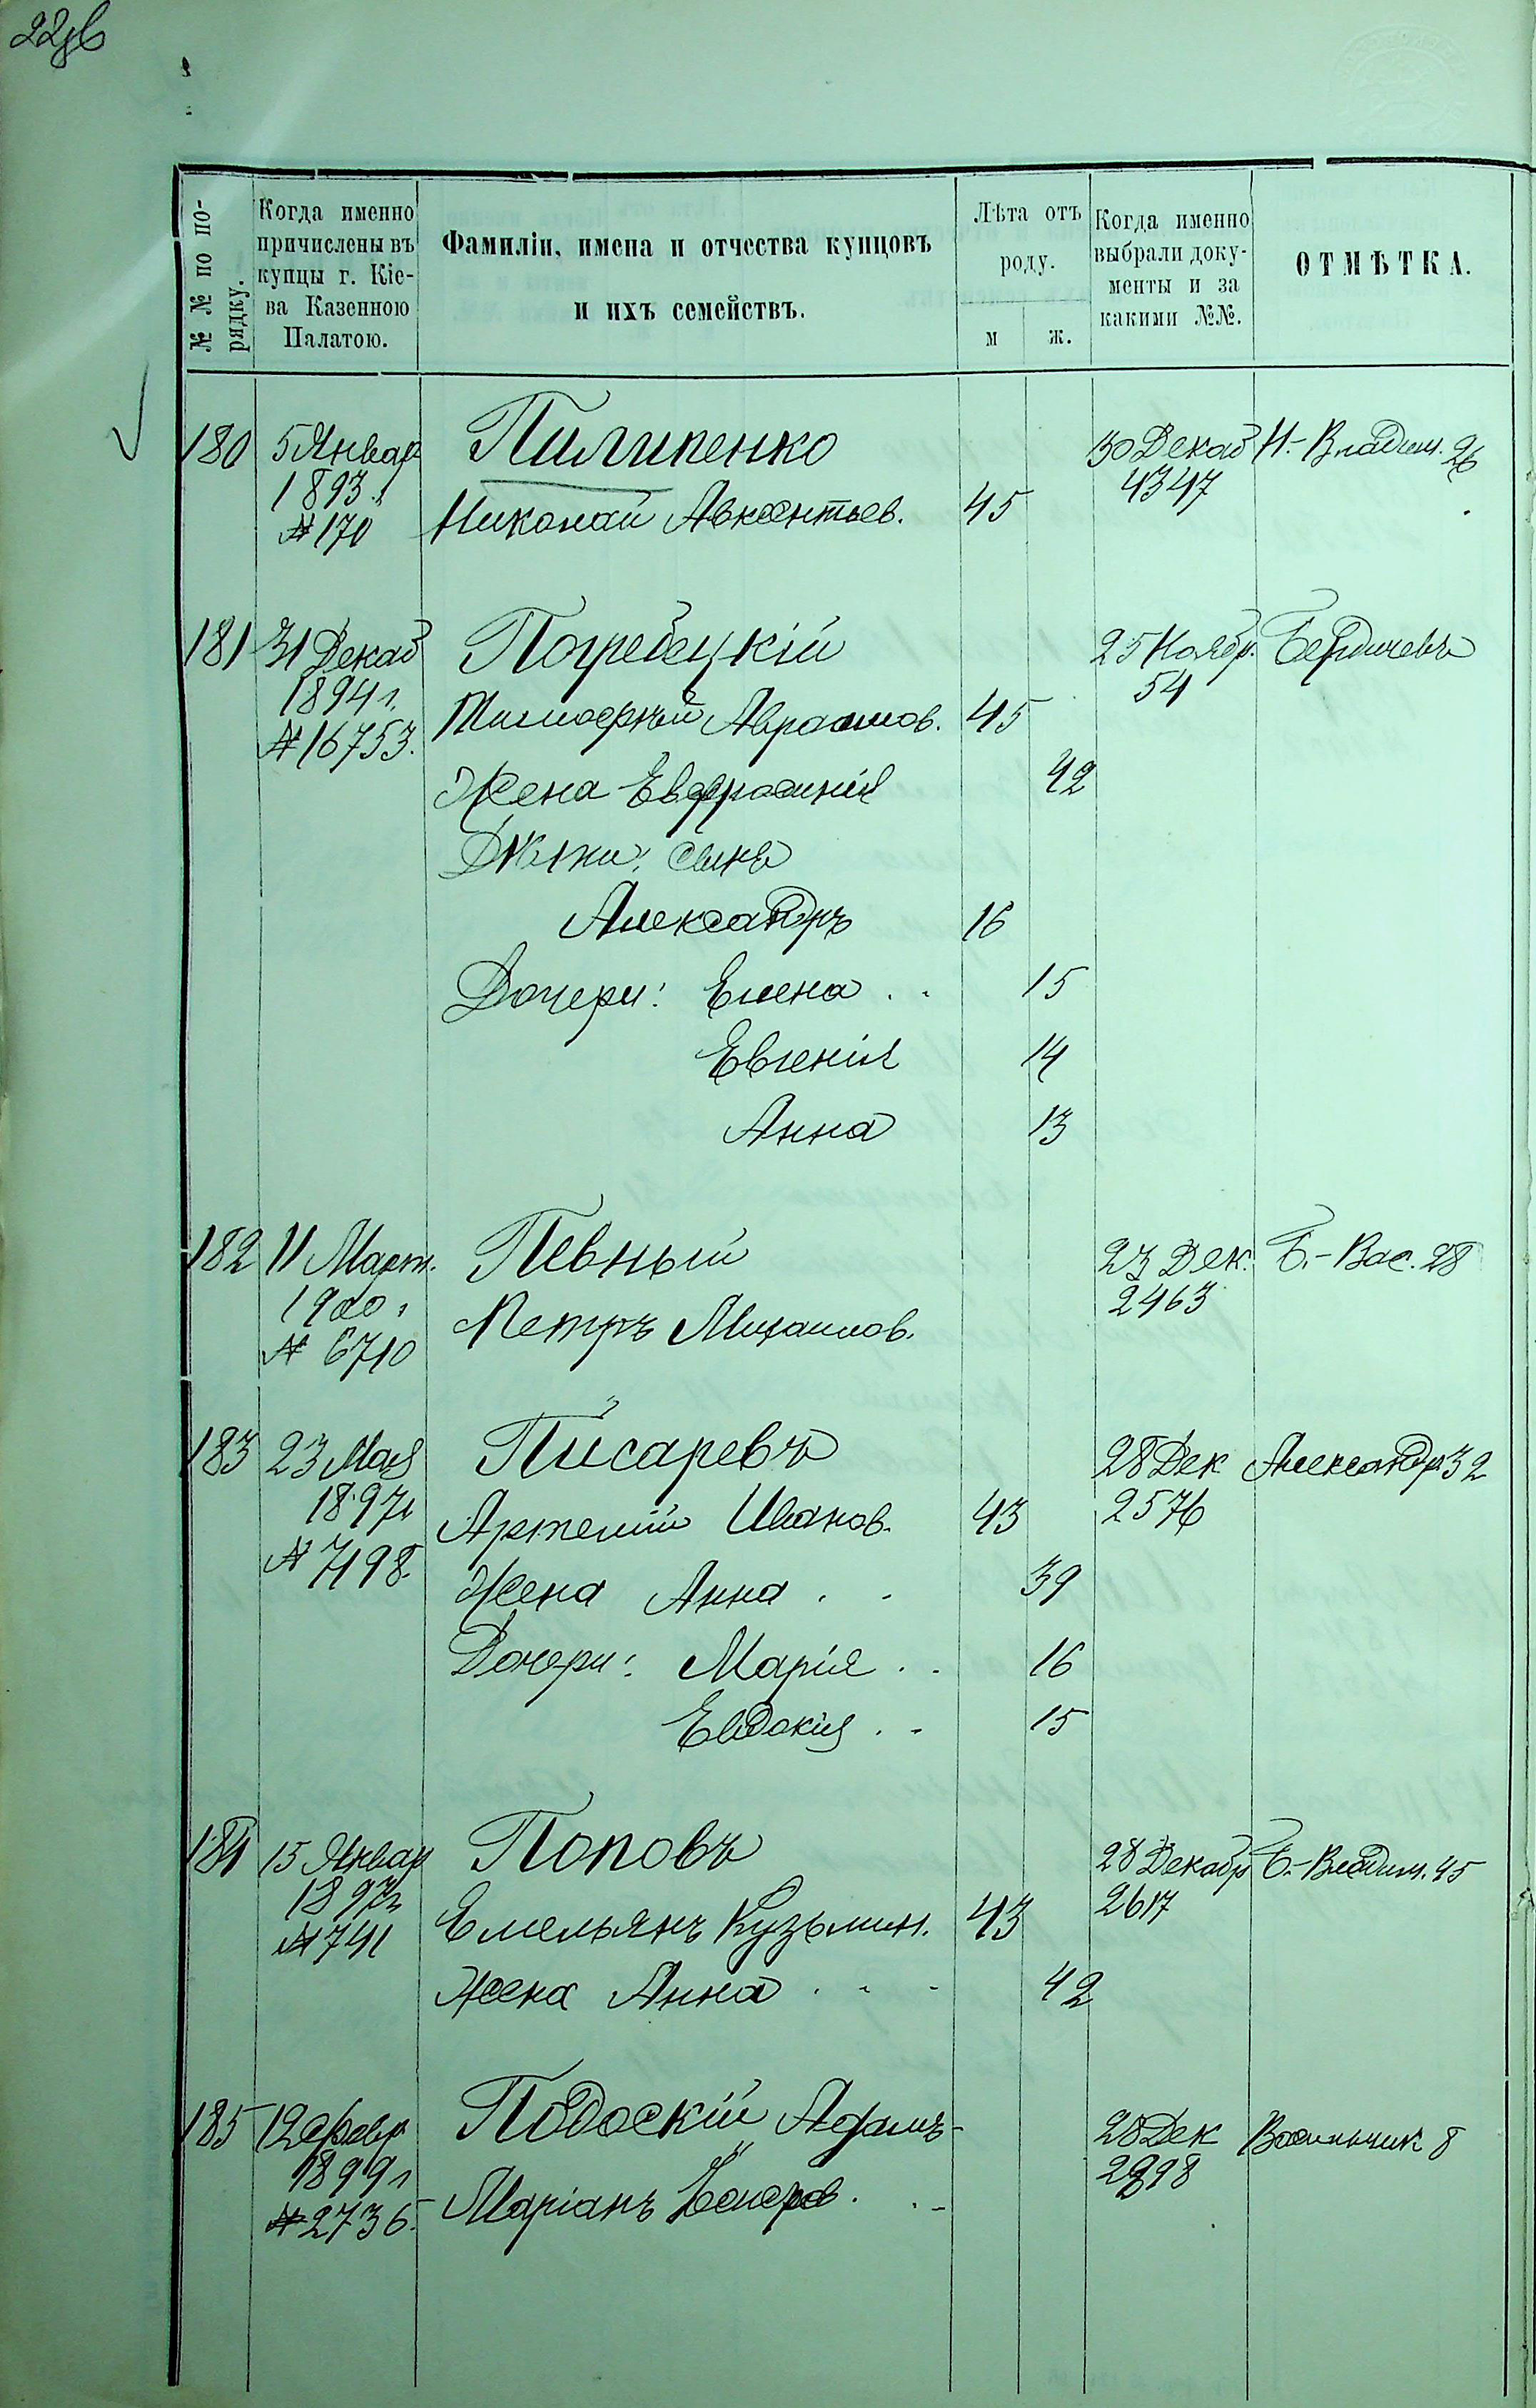 22об
№ № по порядку.
Когда именно причислены въ купцы г. Кіева Казенною Палатою.
Фамиліи, имена и отчества купцовъ и ихъ семействъ.
Лѣта отъ роду.
м
ж.
Когда именно выбрали документы и за какими №№.
ОТМѢТКА.
180 5 Январ Пилипенко 30 Декаб Н.-Владим. 26
1893 г. 4347
№ 170 Николай Авксентьев. 45
181 31 Декаб Погребецкій 25 Ноябр. Бердичевъ
1894 г. 54
№ 16753. Тимофей Авраамов. 45
Жена Евфросинія 42
Дѣти: сынъ
Александръ 16
Дочери: Елена . . 15
Евгенія 14
Анна 13
182 11 Март. Певный 23 Дек. Б.-Вас. 28
1900 г. 2463
№ 6710 Петръ Михаилов.
183 23 Мая Писаревъ 28 Дек Александр 32
1897 г. 2576
№ 7198. Артемій Иванов. 43
Жена Анна . . 39
Дочери: Марія . . 16
Евдокія . . 15
184 15 Январ Поповъ 28 Декабр Б.-Владим. 45
1897 г. 2617
№ 741 Емельянъ Кузьмин. 43
Жена Анна . . - 42
185 12 Февр Подоскій Адамъ- 28 Дек Васильчик 8
1899 г.
№ 2736. Маріанъ